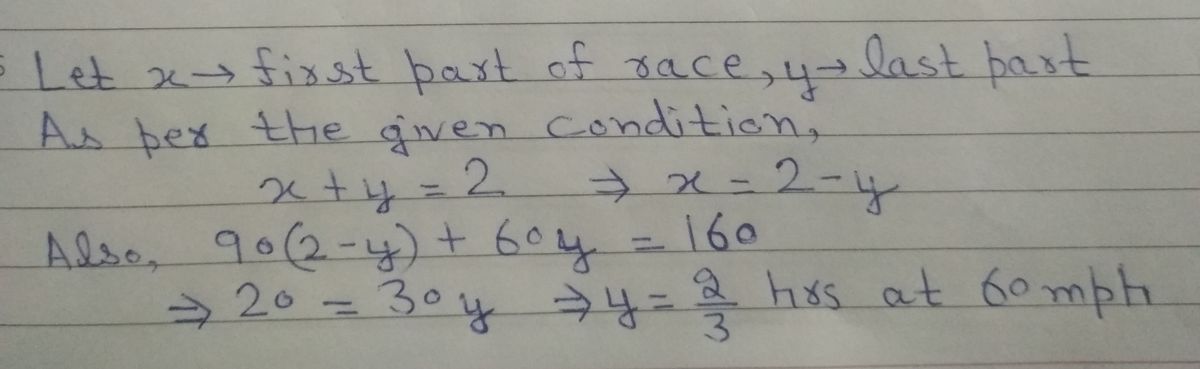 Let x → first part of race, y → last part
As per the given condition,
x + y = 2 ⇒ x = 2 - y
Also, 90(2-y) + 60y = 160
⇒ 20 = 30y ⇒ y = 2/3 hrs at 60 mph